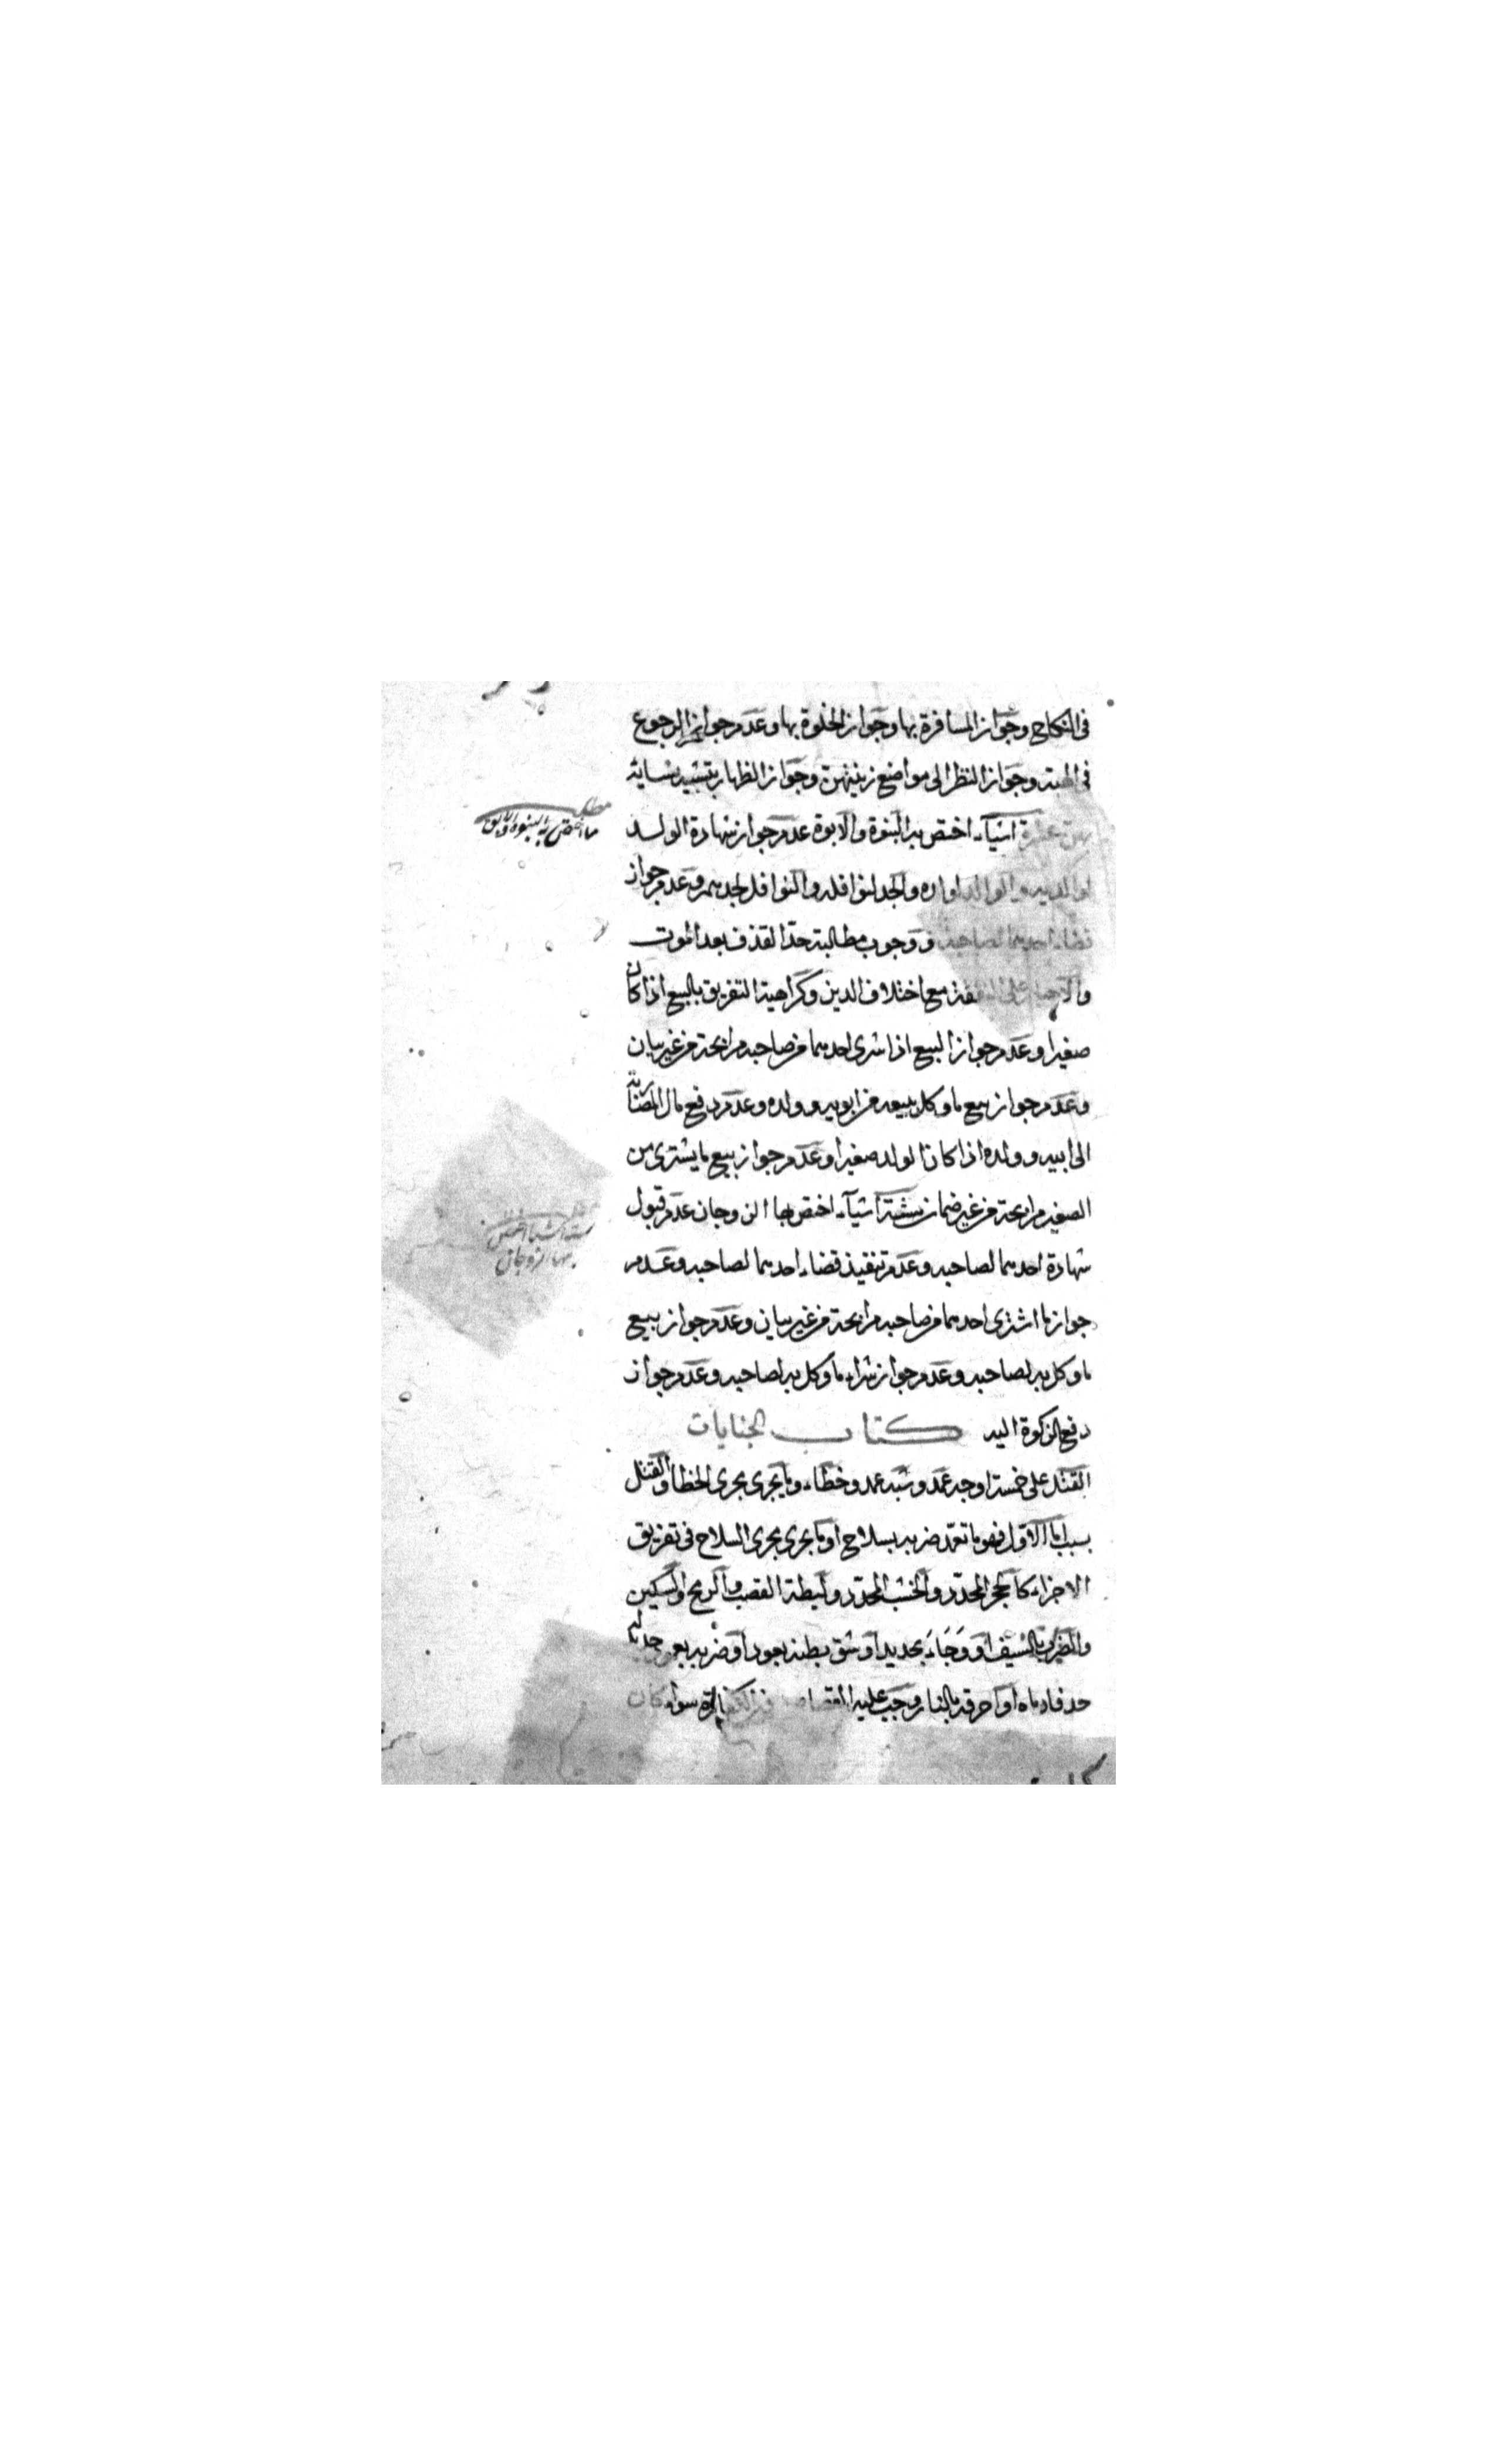 في النكاح وجواز المسافرة بها وجواز الخلوة بها وعدم جواز الرجوع
في الهبة وجواز النظر الى مواضع زينتهن وجواز الظهار بتشبيه نسائه
بهن عشرة اشيآء اختص به البنوة والابوة عدم جواز شهادة الولد
لوالديه والوالد اولاده والجد لنوافله والنوافل لجدهم وعدم جواز
قضاء احدهما لصاحبه ووجوب مطالبة حدّ القذف بعد الموت
والاجبار على النفقة مع اختلاف الدين وكراهية التفريق بالبيع اذا كان
صغيرا وعدم جواز البيع اذا اشرى احدهما من صاحبه مرابحة من غير بيان
وعدم جواز بيع ما وكل ببيعه من ابويه وولده وعدم دفع مال المضاربة
الى ابيه وولده اذا كان الولد صغيرا وعدم جواز بيع ما يشترى من
الصغير مرابحة من غير ضمان ستة اشيآء اختص بها الزوجان عدم قبول
شهادة احدهما لصاحبه وعدم تنفيذ قضاء احدهما لصاحبه وعدم
جواز ما اشترى احدهما من صاحبه مرابحة من غير بيان وعدم جواز بيع
ما وكل به لصاحبه وعدم جواز شراء ما وكل به لصاحبه وعدم جواز
دفع الزكوة اليه كتاب الجنايات
القتل على خمسة اوجه عمد وشبه عمد وخطاء وما يجرى مجرى الخطا والقتل
بسبب اما الاوّل فهو ما تعمّد ضربه بسلاح او ما يجرى مجرى السلاح في تفريق
الاجزاء كالحجر المحدّد والخشب المحدّد وليطة القصب والرمح والسكين
والضرب بالسيف او وَجَاءَ بحديد او شق بطنه بعود او ضربه بعود
حد فادماه او احرقه بالنار وجب عليه القصاص سواء كان
مطلب
ما اختص به البنوة والابوة
ستة اشيا اختص
بها الزوجان